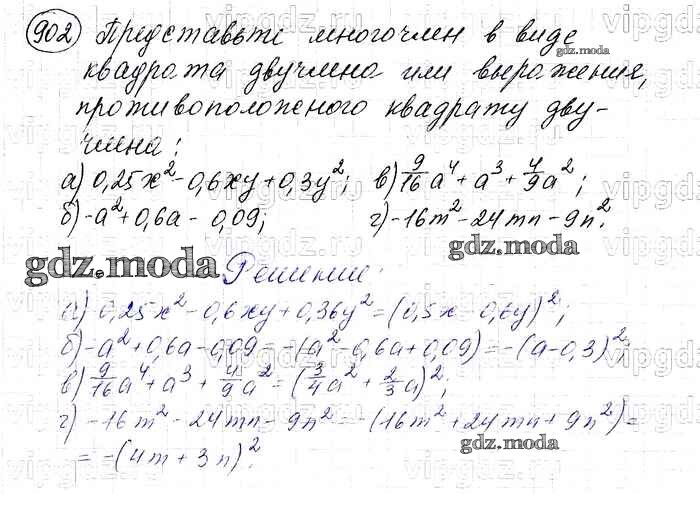 902 Представьте многочлен в виде
gdz.moda
квадрата двучлена или выражения,
противоположеного квадрату дву-
члена:
а) 0,25x² - 0,6xy + 0,3y²; в) 9/16 a⁴ + a³ + 4/9 a²;
б) -a² + 0,6a - 0,09; г) -16m² - 24mn - 9n².
gdz.moda
gdz.moda Решение:
а) 0,25x² - 0,6xy + 0,36y² = (0,5x - 0,6y)²;
б) -a² + 0,6a - 0,09 = -(a² - 0,6a + 0,09) = -(a - 0,3)²;
в) 9/16 a⁴ + a³ + 4/9 a² = (3/4 a² + 2/3 a)²;
г) -16m² - 24mn - 9n² = -(16m² + 24mn + 9n²) =
gdz.moda
= -(4m + 3n)².